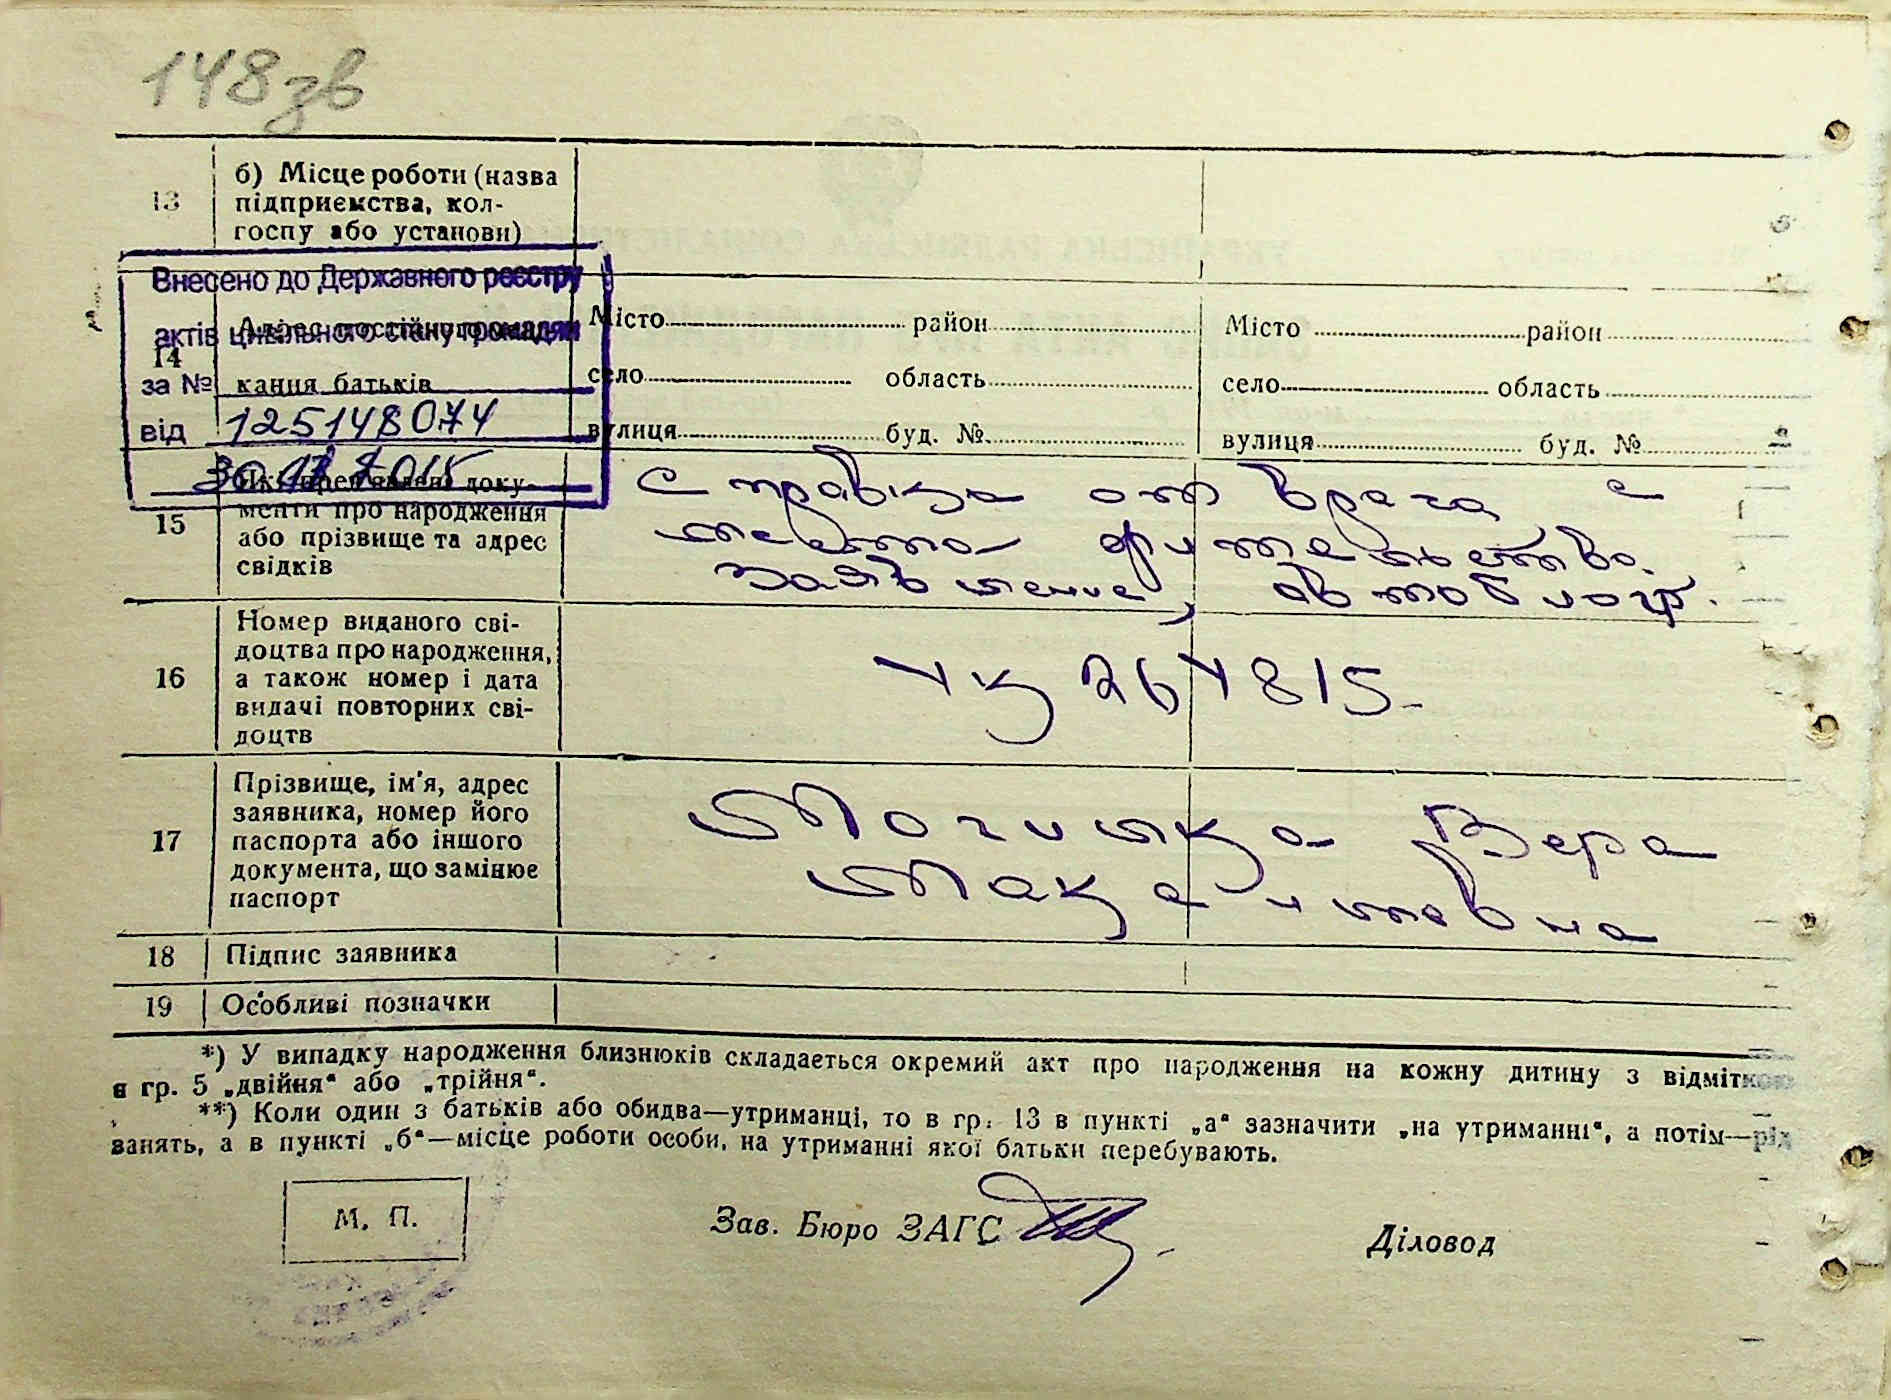 148зв
13
б) Місце роботи (назва
підприємства, кол-
госпу або установи)
Внесено до Державного реєстру
актів цивільного стану громадян
за №
125148074
від
14
кання батьків
Місто район
село область
вулиця буд. №
Місто район
село область
вулиця буд. №
15
доку-
менти про народження
або прізвище та адрес
свідків
Справка от врача с
места жительства.
Заявление, автобиогр.
16
Номер виданого сві-
доцтва про народження,
а також номер і дата
видачі повторних сві-
доцтв
УК 264815
17
Прізвище, ім'я, адрес
заявника, номер його
паспорта або іншого
документа, що замінює
паспорт
Вера
18
Підпис заявника
19
Особливі позначки
*) У випадку народження близнюків складається окремий акт про народження на кожну дитину з відміткою
в гр. 5 „двійня“ або „трійня“.
**) Коли один з батьків або обидва—утриманці, то в гр. 13 в пункті „а“ зазначити „на утриманні“, а потім—рід
занять, а в пункті „б“—місце роботи особи, на утриманні якої батьки перебувають.
М. П.
Зав. Бюро ЗАГС
Діловод